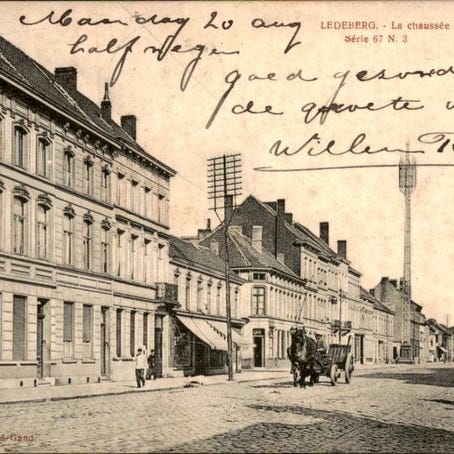 Maandag 20 aug
LEDEBERG. - La chaussée
Série 67 N. 3
half negen
goed gezond
de groete v
Willem
-Gand